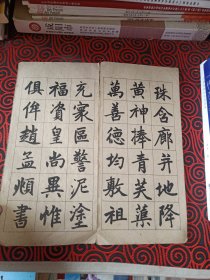 珠含廊并地降
黄神捧青芙蕖
萬善德均敷祖
充寰區警泥塗
福資皇尚異惟
俱侔趙孟頫書